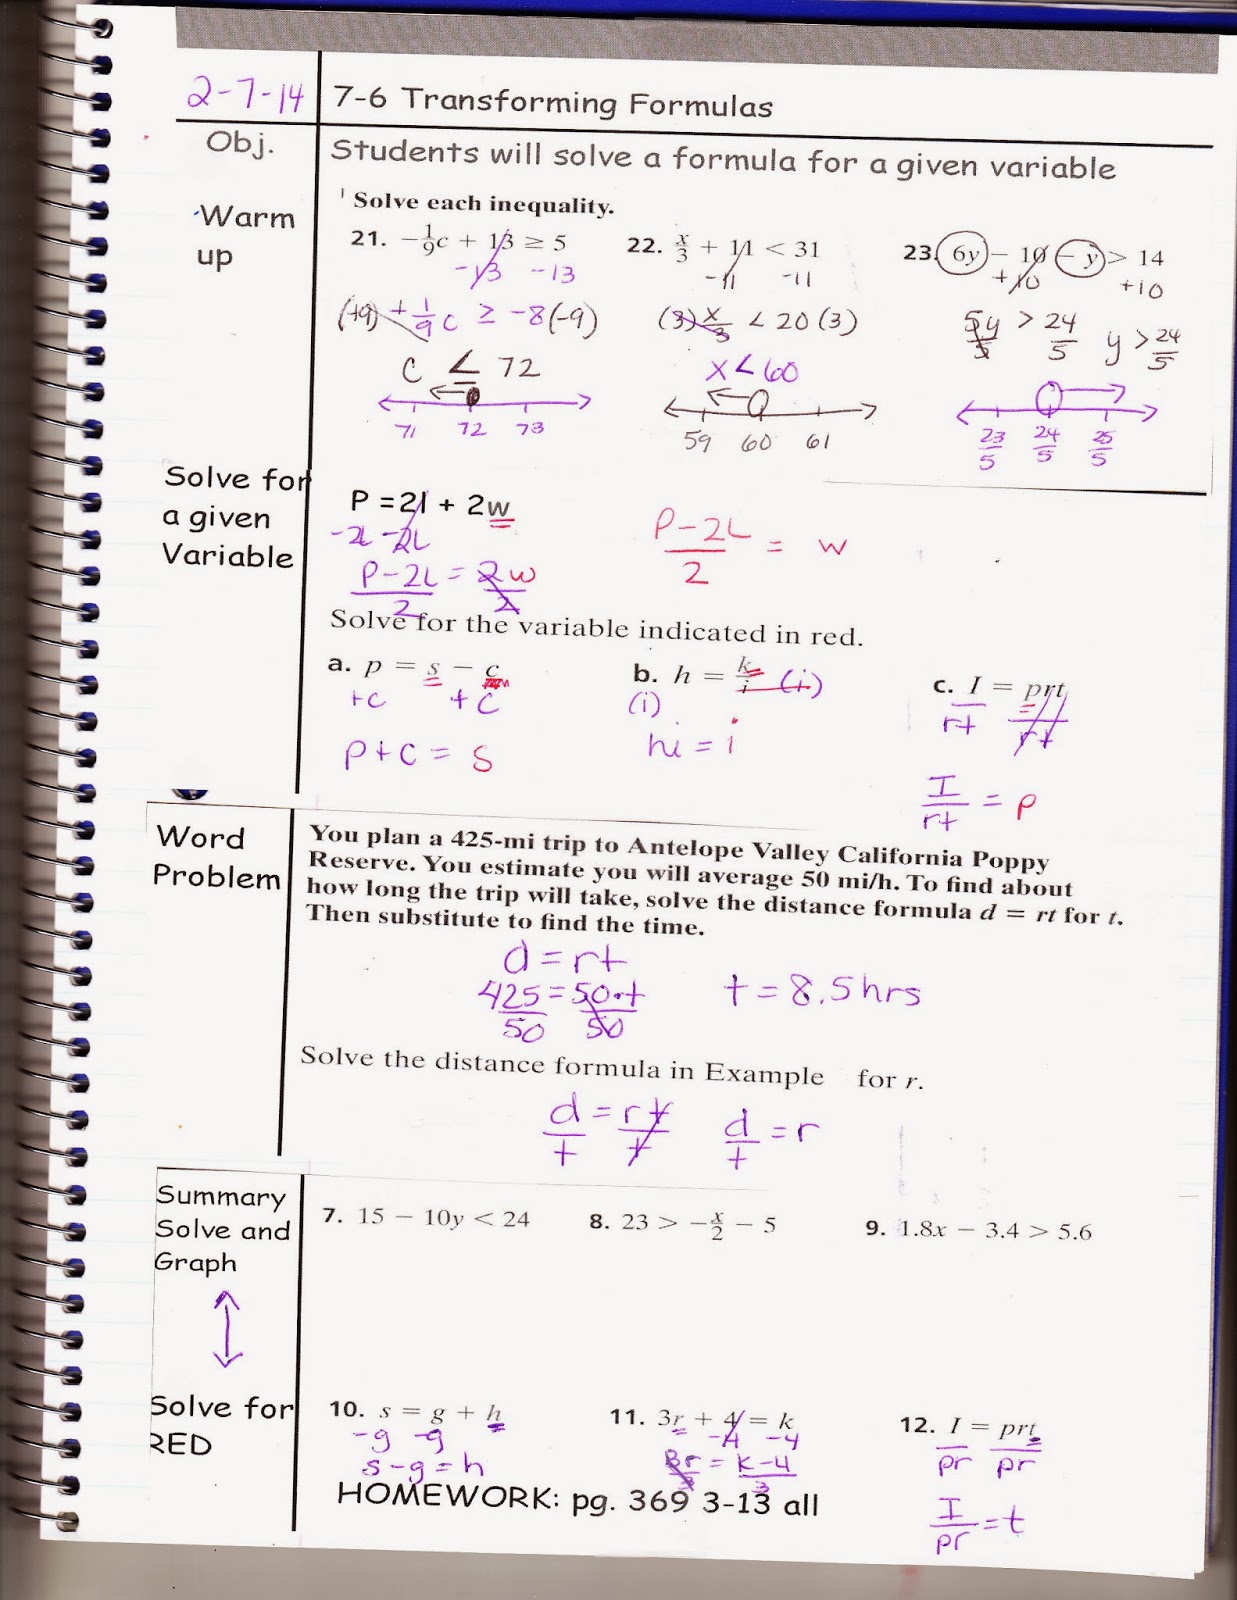 2-7-14 7-6 Transforming Formulas
Obj. Students will solve a formula for a given variable
Warm up
Solve each inequality.
21. -1/9c + 13 ≥ 5
-13 -13
(+9) +1/9 c ≥ -8(-9)
c ≤ 72
71 72 73
22. x/3 + 11 < 31
-11 -11
(3) x/3 < 20 (3)
x < 60
59 60 61
23. 6y - 10 - y > 14
+10 +10
5y/5 > 24/5 y > 24/5
23/5 24/5 25/5
Solve for
a given
Variable
P = 2l + 2w
-2L -2L
P-2L/2 = 2w/2
P-2L/2 = w
Solve for the variable indicated in red.
a. p = s - c
+c +c
p+c = s
b. h = k/i (i)
(i)
hi = i
c. I = prt
rt rt
I/rt = p
Word
Problem
You plan a 425-mi trip to Antelope Valley California Poppy
Reserve. You estimate you will average 50 mi/h. To find about
how long the trip will take, solve the distance formula d = rt for t.
Then substitute to find the time.
d = rt
425/50 = 50·t/50
t = 8.5hrs
Solve the distance formula in Example for r.
d/t = rt/t d/t = r
Summary
Solve and
Graph
7. 15 - 10y < 24 8. 23 > -x/2 - 5 9. 1.8x - 3.4 > 5.6
Solve for
RED
10. s = g + h
-g -g
s-g=h
11. 3r + 4 = k
-4 -4
3r/3 = k-4/3
12. I = prt
pr pr
I/pr = t
HOMEWORK: pg. 369 3-13 all